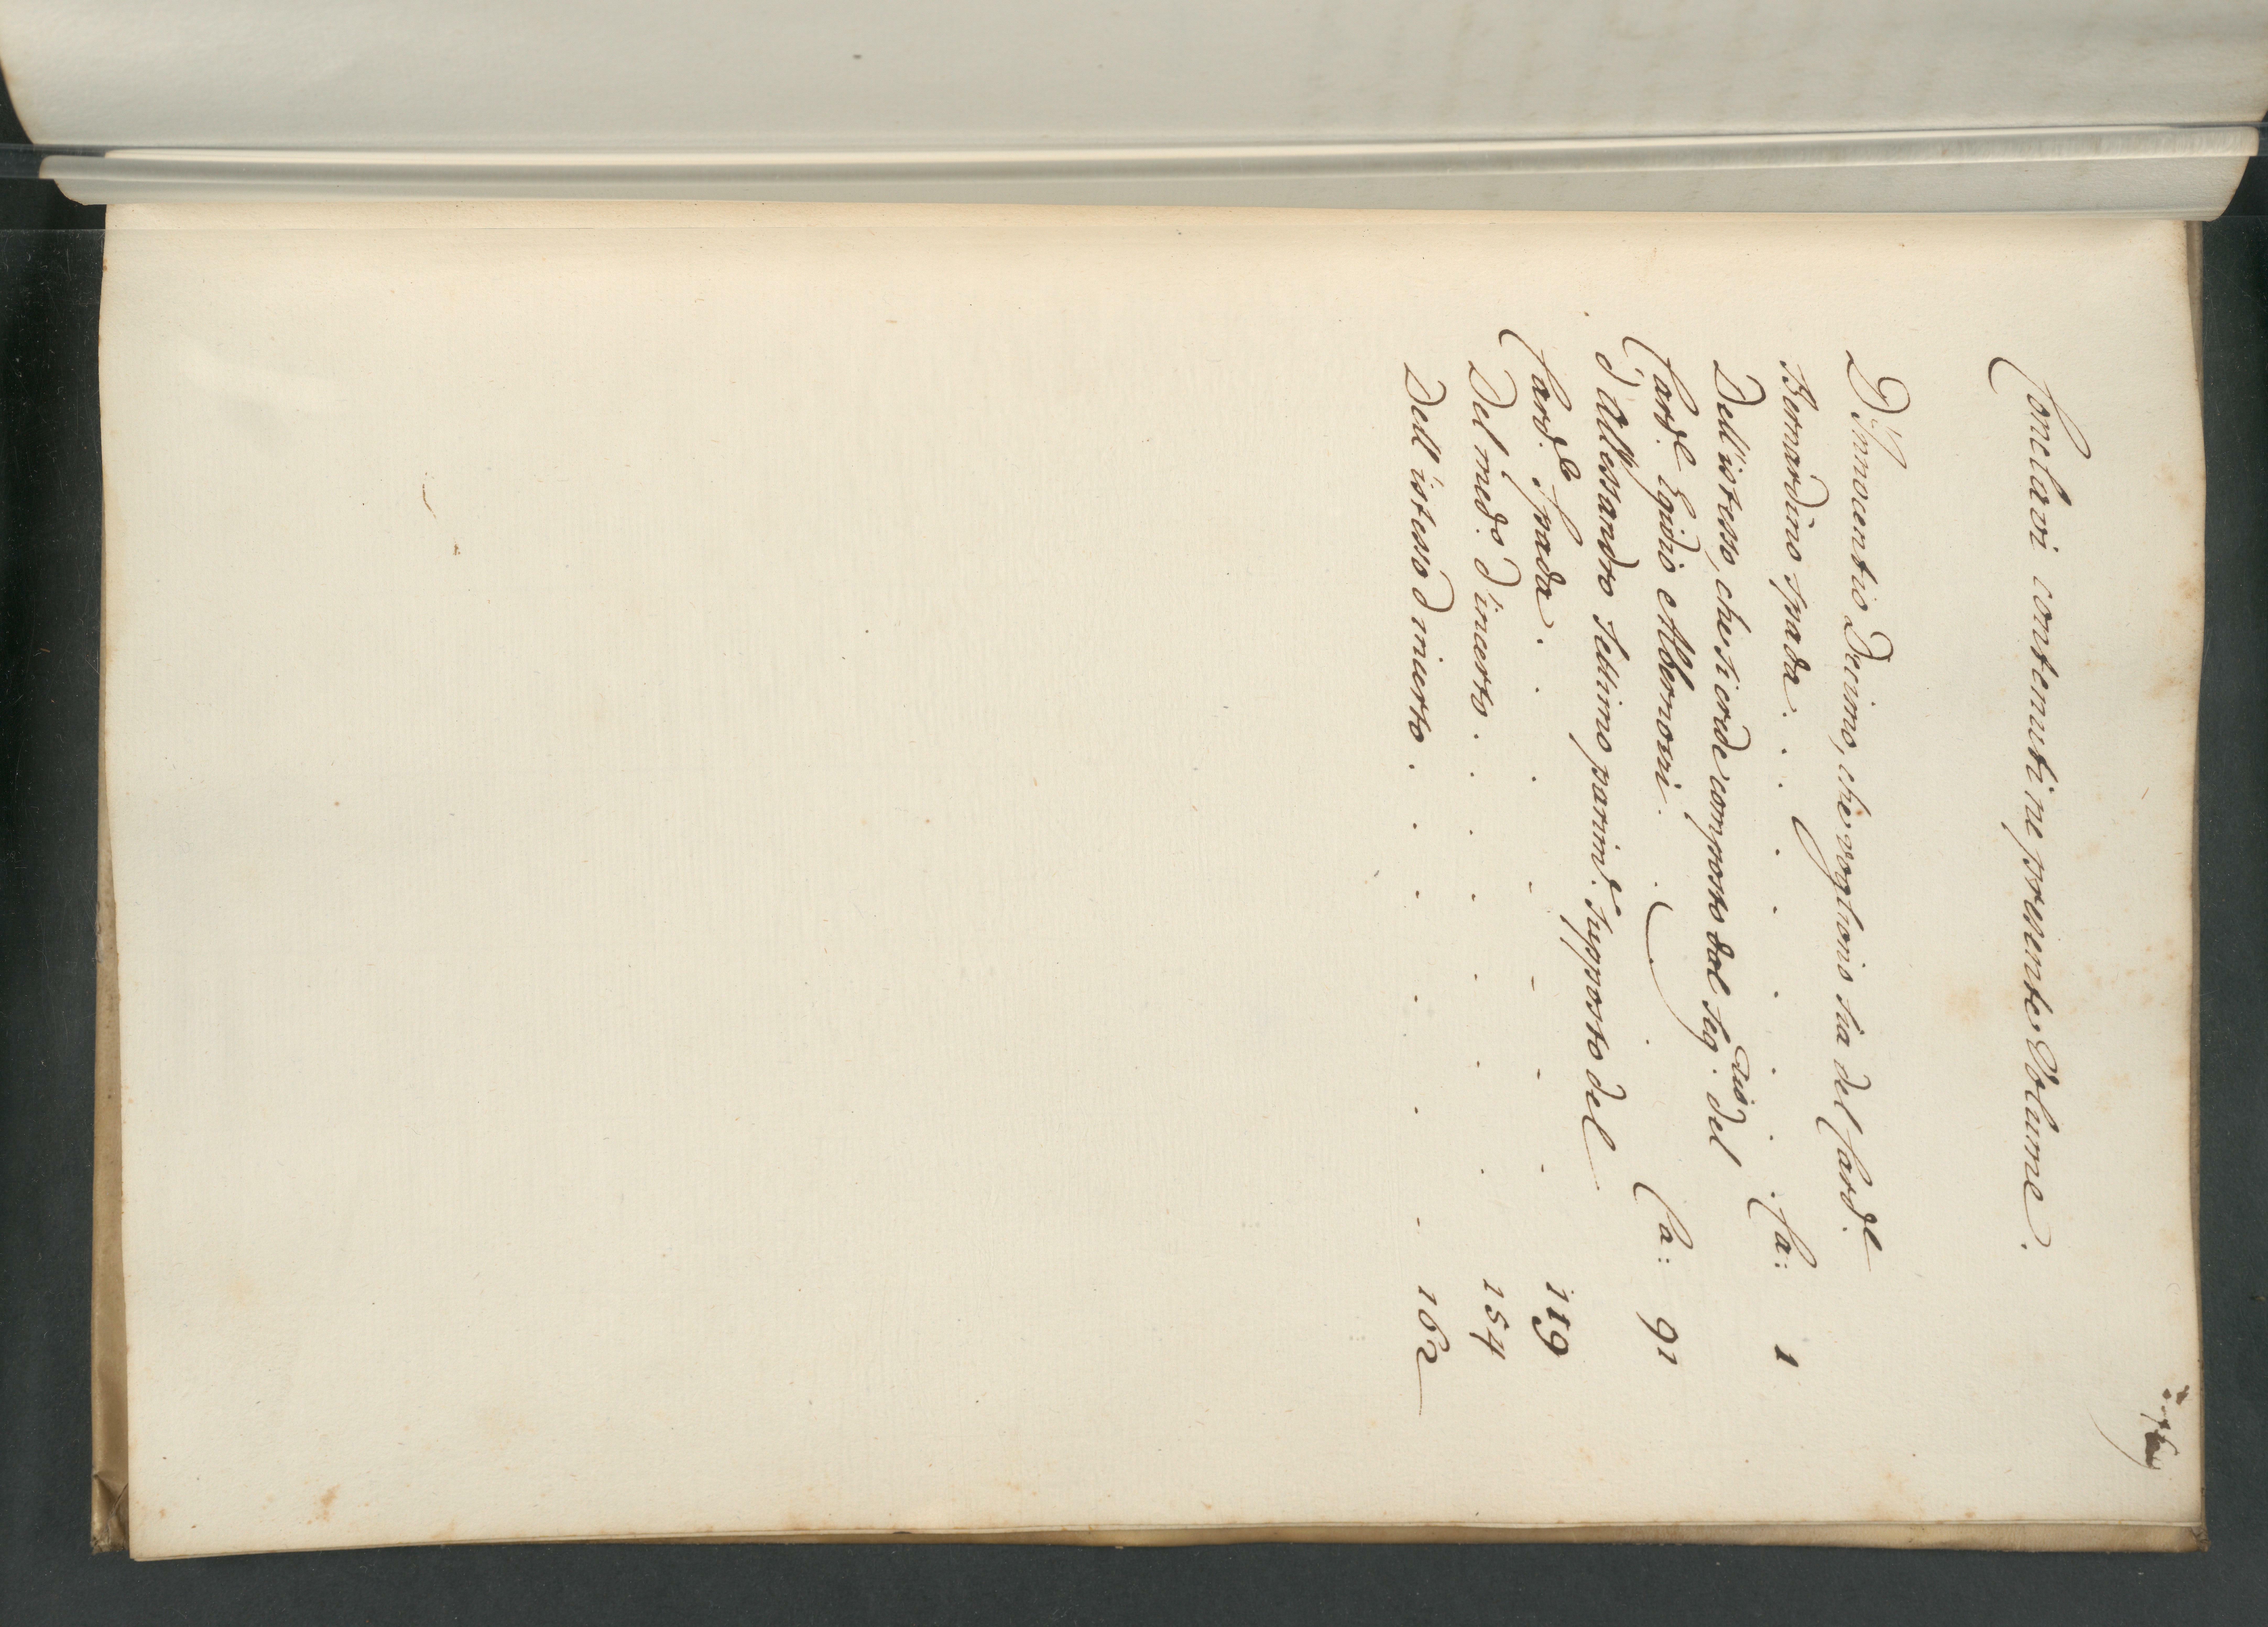 Conclavi contenuti nel presente Volume.
D'Innocentio Decimo, che vogliono sia del Card.le
Bernardino Spada. . . . . . . . Ca: 1
Dell'istesso, che si crede composto dal Seg.rio del
Card.le Egidio Albernozzi. . . . . Ca: 91
d'Allessandro Settimo parim.te supposto del
Card.le Spada. . . . . . . . 119
Del med.o d'incerto. . . . . . . 154
Dell'istesso d'incerto. . . . . . . 162